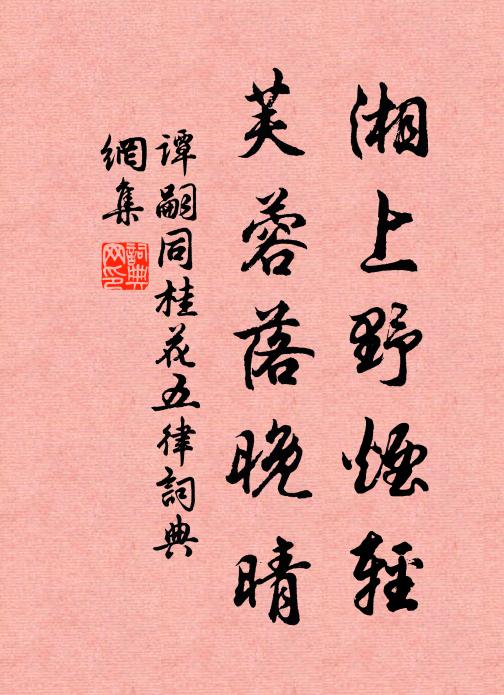 湘上野煙輕
芙蓉落晚晴
譚嗣同桂花五律詞典
網集
詞典網印